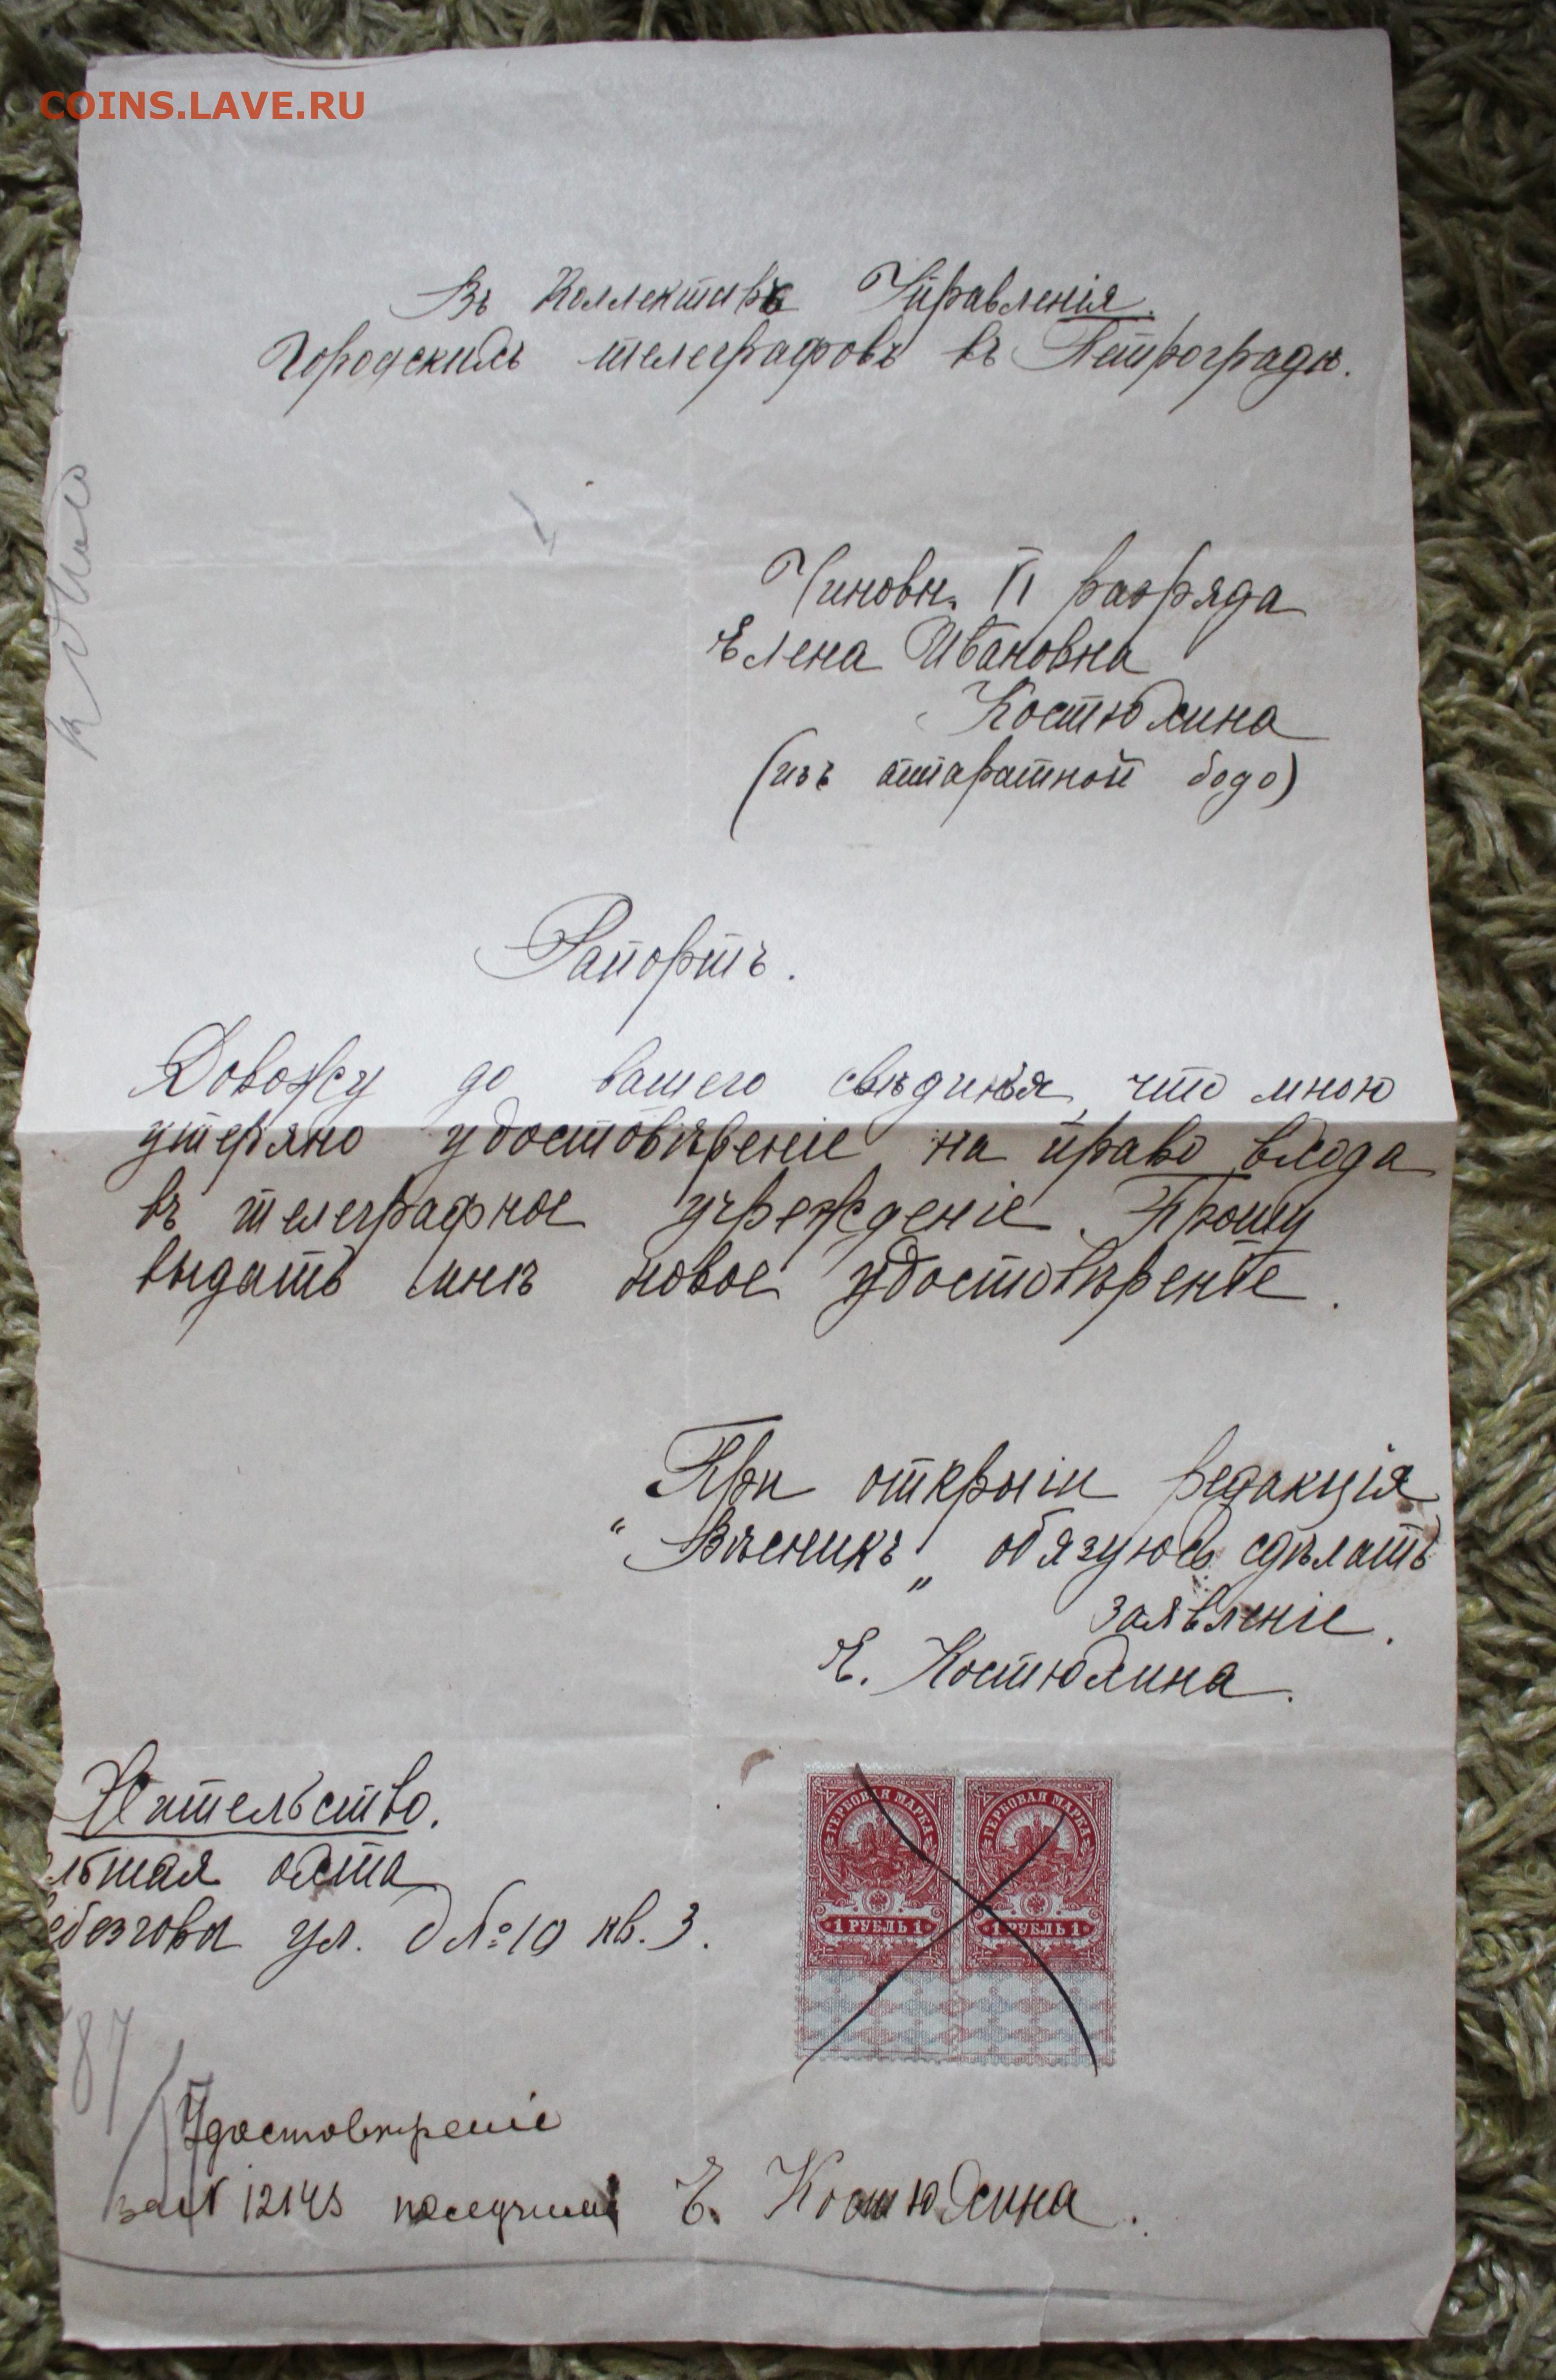 COINS.LAVE.RU
Въ Коллективъ Управленія
Городскихъ телеграфовъ въ Петроградѣ.
Чиновн. VI разряда
Елена Ивановна
Костюхина
(изъ аппаратной бодо)
Рапортъ.
Довожу до вашего свѣдинья, что мною
утеряно удостовѣреніе на право входа
въ телеграфное учрежденіе. Прошу
выдать мнѣ новое удостовѣреніе.
При открыіи редакція
"Вѣсникъ" обязуюсь сдѣлать
заявленіе.
Е. Костюхина.
Жительство.
льшая охта
ул. д № 10 кв. 3.
ГЕРБОВАЯ МАРКА ГЕРБОВАЯ МАРКА
1 РУБЛЬ 1 1 РУБЛЬ 1
87
Удостовѣреніе
за № 12145 получила Е. Костюхина.